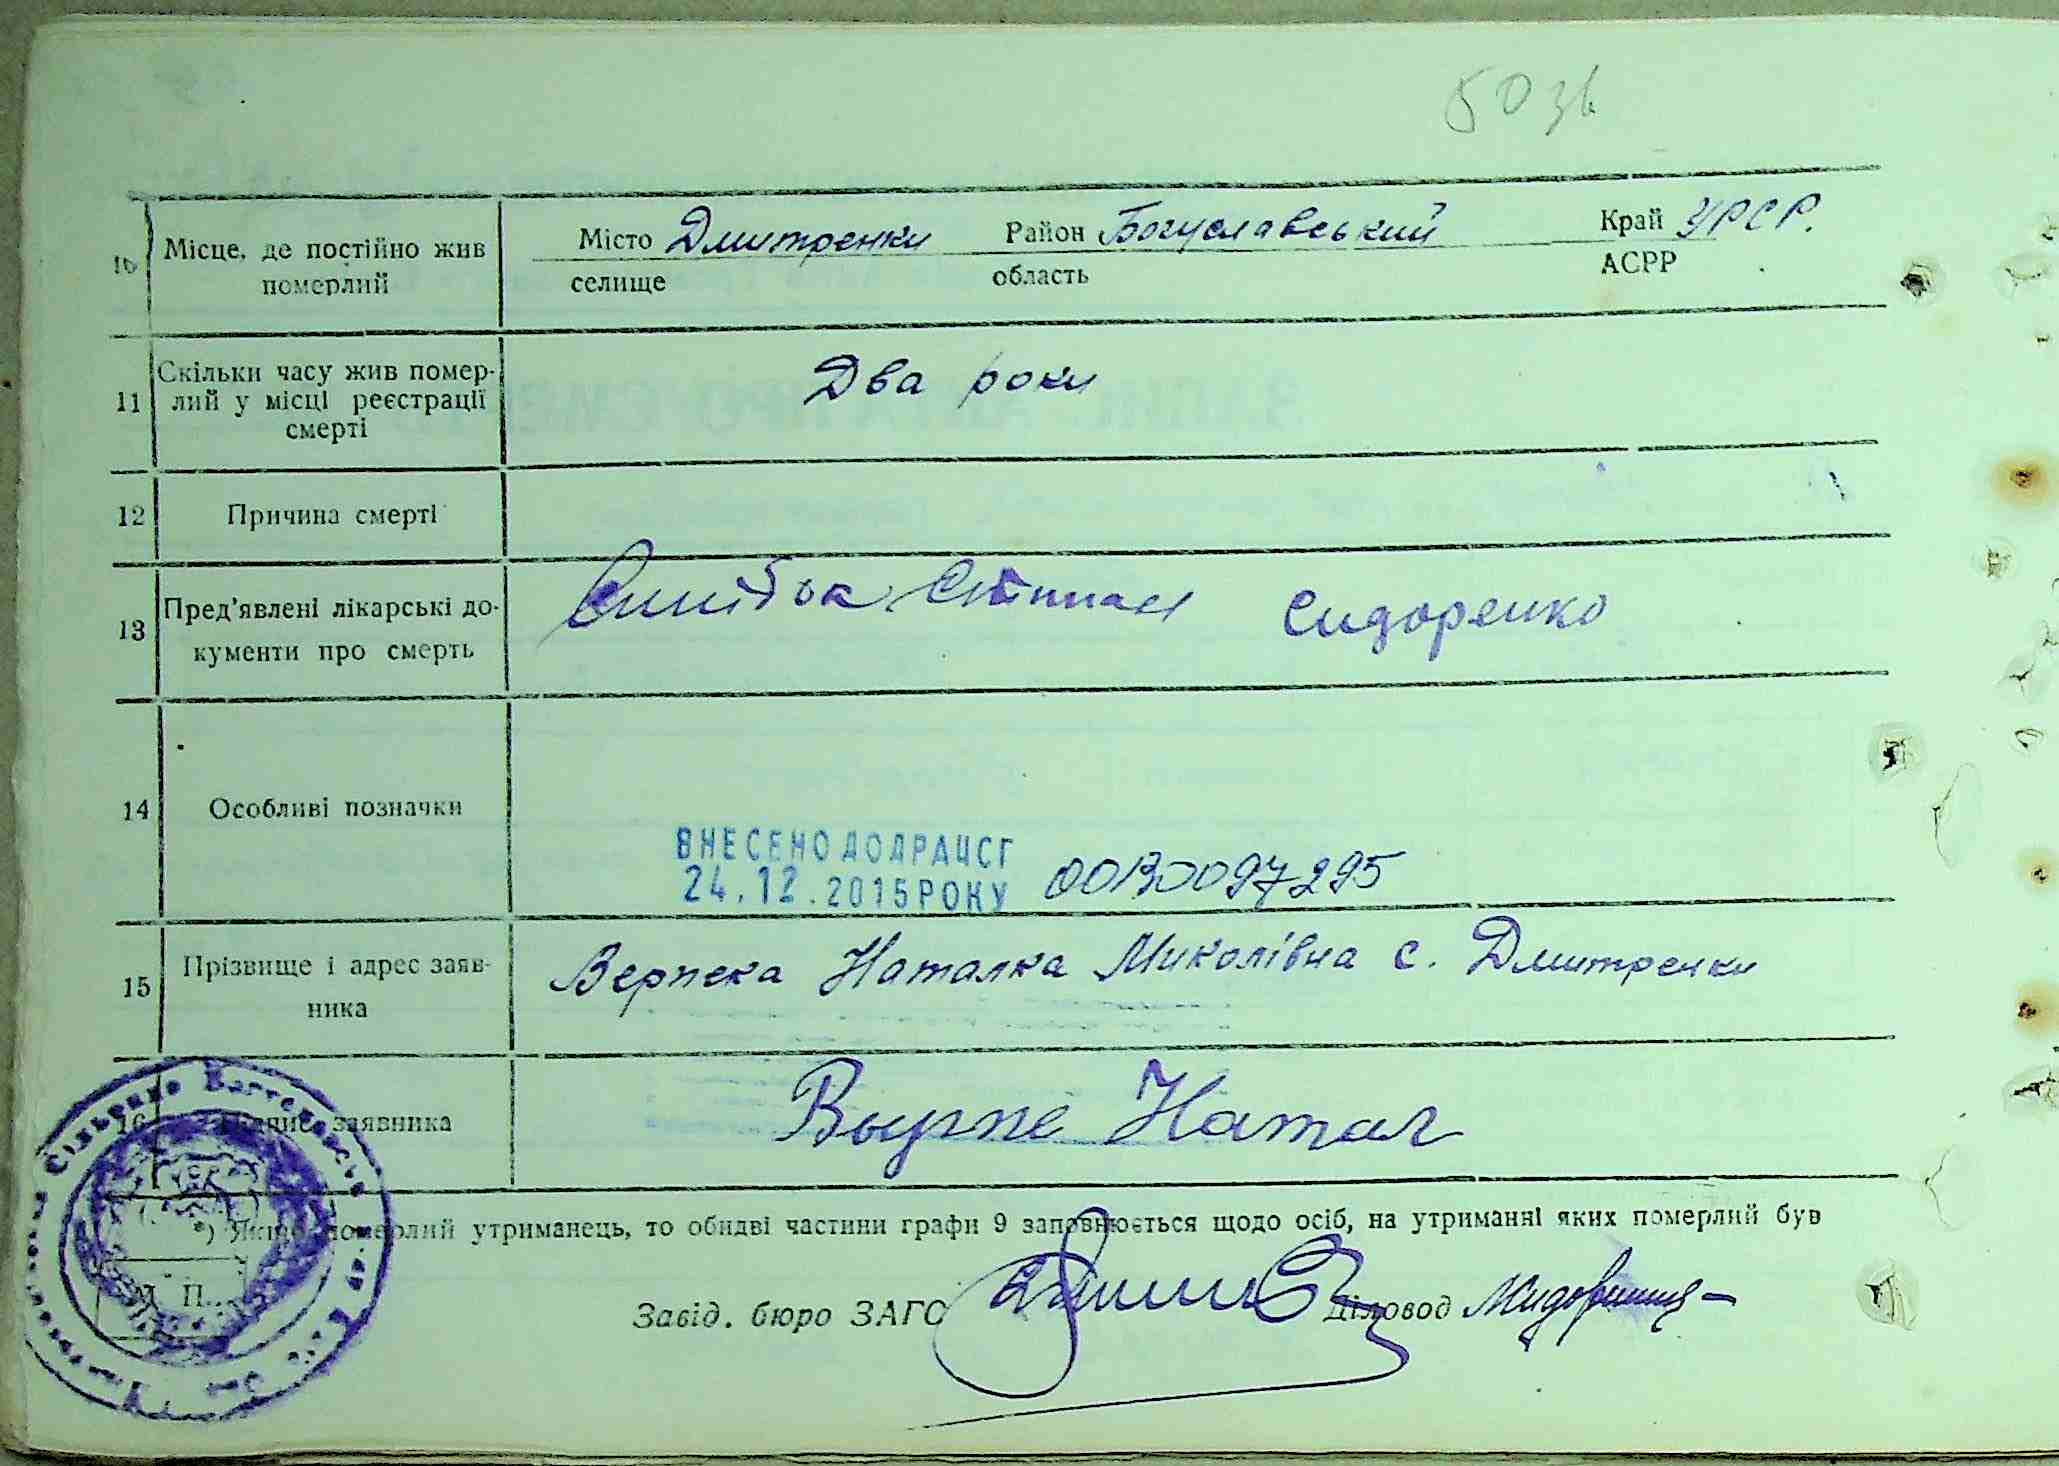 50 зв
10 Місце, де постійно жив померлий
Місто Дмитренки Район Богуславський Край УРСР.
селище область АСРР
11 Скільки часу жив помер-
лий у місці реєстрації
смерті
Два роки
12 Причина смерті
13 Пред'явлені лікарські до-
кументи про смерть
Сидоренко
14 Особливі позначки
ВНЕСЕНО ДО ДРАЦСГ
24.12.2015 РОКУ 00130097295
15 Прізвище і адрес заяв-
ника
Верпека Наталка Миколівна с. Дмитренки
16 Підпис заявника
Вырпе Натал
*) Якщо померлий утриманець, то обидві частини графи 9 заповнюється щодо осіб, на утриманні яких померлий був
М. П.
Завід. бюро ЗАГС Діловод